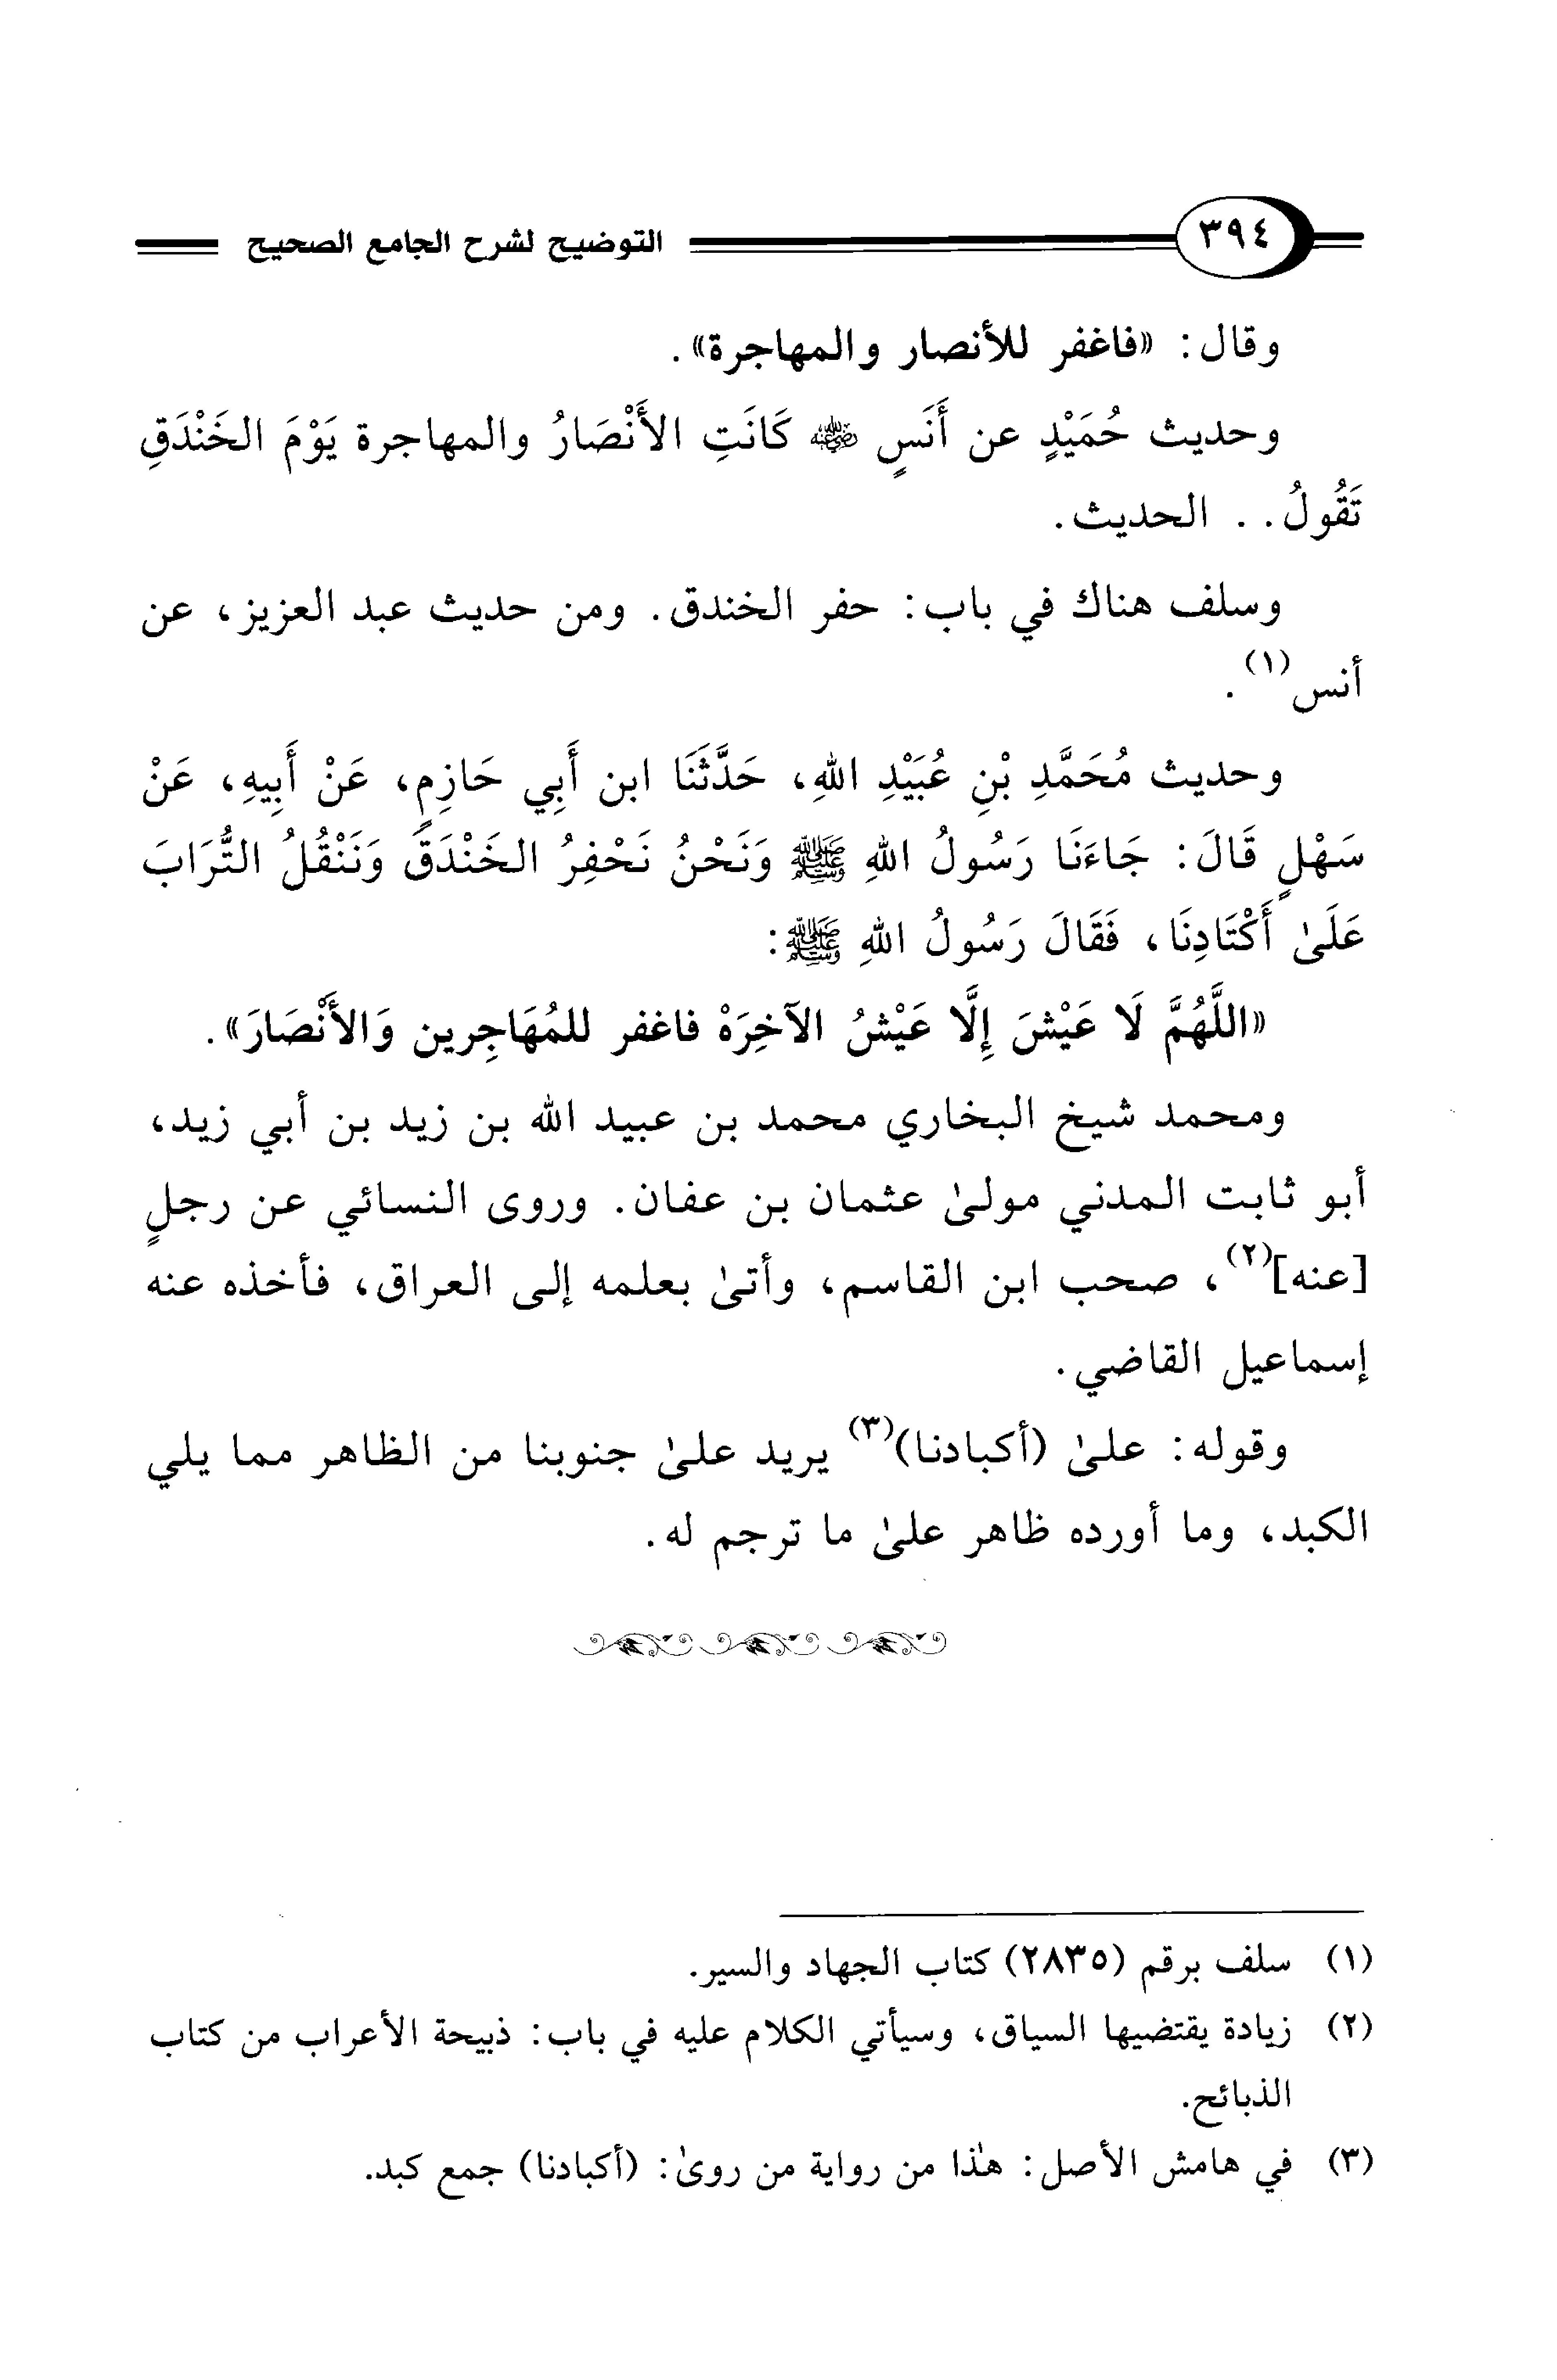 ٣٩٤ التوضيح لشرح الجامع الصحيح
وقال: «فاغفر للأنصار والمهاجرة».
وحديث حُمَيْدٍ عن أَنَسٍ رضي الله عنه كَانَتِ الأَنْصَارُ والمهاجرة يَوْمَ الخَنْدَقِ
تَقُولُ.. الحديث.
وسلف هناك في باب: حفر الخندق. ومن حديث عبد العزيز، عن
أنس(١).
وحديث مُحَمَّدِ بْنِ عُبَيْدِ اللهِ، حَدَّثَنَا ابن أَبِي حَازِمٍ، عَنْ أَبِيهِ، عَنْ
سَهْلٍ قَالَ: جَاءَنَا رَسُولُ اللهِ ﷺ وَنَحْنُ نَحْفِرُ الخَنْدَقَ وَنَنْقُلُ التُّرَابَ
عَلَىٰ أَكْتَادِنَا، فَقَالَ رَسُولُ اللهِ ﷺ:
«اللَّهُمَّ لَا عَيْشَ إِلَّا عَيْشُ الآخِرَهْ فاغفر للمُهَاجِرين وَالأَنْصَارَ».
ومحمد شيخ البخاري محمد بن عبيد الله بن زيد بن أبي زيد،
أبو ثابت المدني مولىٰ عثمان بن عفان. وروى النسائي عن رجلٍ
[عنه](٢)، صحب ابن القاسم، وأتىٰ بعلمه إلى العراق، فأخذه عنه
إسماعيل القاضي.
وقوله: علىٰ (أكبادنا)(٣) يريد علىٰ جنوبنا من الظاهر مما يلي
الكبد، وما أورده ظاهر علىٰ ما ترجم له.
(١) سلف برقم (٢٨٣٥) كتاب الجهاد والسير.
(٢) زيادة يقتضيها السياق، وسيأتي الكلام عليه في باب: ذبيحة الأعراب من كتاب
الذبائح.
(٣) في هامش الأصل: هٰذا من رواية من روىٰ: (أكبادنا) جمع كبد.